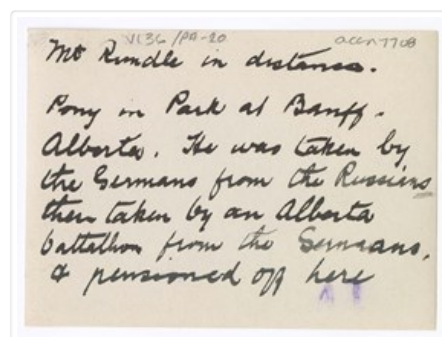 V136/PA-20 accn 7708
Mt Rundle in distance.
Pony in Park at Banff.
Alberta. He was taken by
the Germans from the Russians
then taken by an Alberta
battalion from the Germans,
& pensioned off here